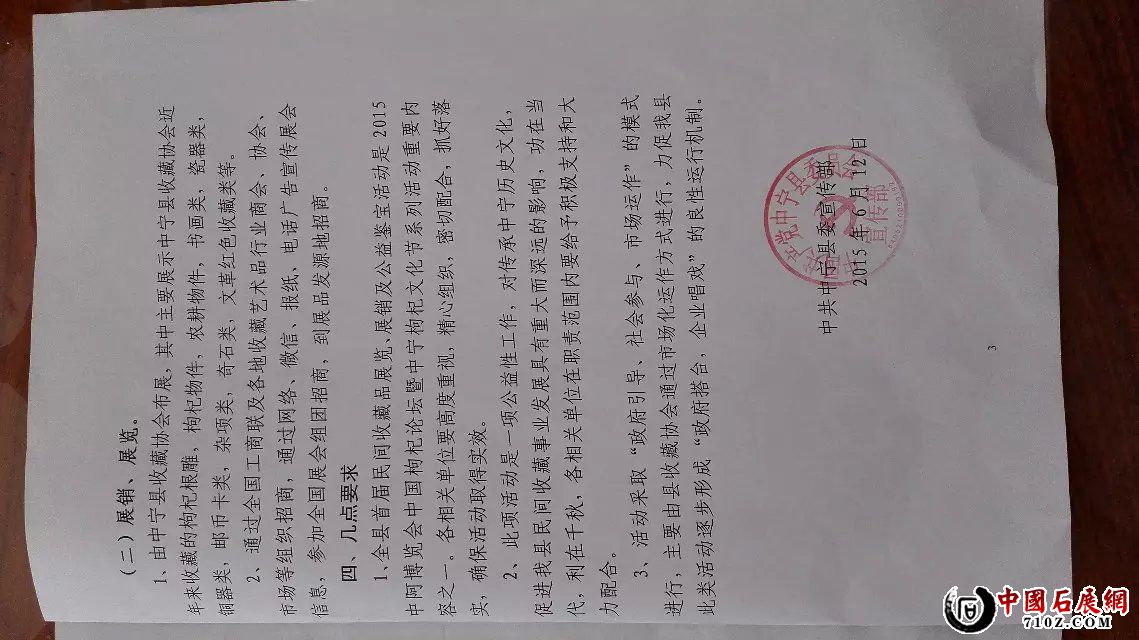 （二）展销、展览。
1、由中宁县收藏协会布展，其中主要展示中宁县收藏协会近
年来收藏的枸杞根雕，枸杞物件，农耕物件，书画类，瓷器类，
铜器类，邮币卡类，杂项类，奇石类，文革红色收藏类等。
2、通过全国工商联及各地收藏艺术品行业商会、协会、
市场等组织招商，通过网络、微信、报纸、电话广告宣传展会
信息，参加全国展会组团招商，到展品发源地招商。
四、几点要求
1、全县首届民间收藏品展览、展销及公益鉴宝活动是 2015
中阿博览会中国枸杞论坛暨中宁枸杞文化节系列活动重要内
容之一。各相关单位要高度重视，精心组织、密切配合，抓好落
实，确保活动取得实效。
2、此项活动是一项公益性工作，对传承中宁历史文化，
促进我县民间收藏事业发展具有重大而深远的影响，功在当
代，利在千秋，各相关单位在职责范围内要给予积极支持和大
力配合。
3、活动采取“政府引导、社会参与、市场运作”的模式
进行，主要由县收藏协会通过市场化运作方式进行，力促我县
此类活动逐步形成“政府搭台，企业唱戏”的良性运行机制。
中共中宁县委宣传部
2015 年 6 月 12 日
宣传部
3
中國石展網
71OZ.COM